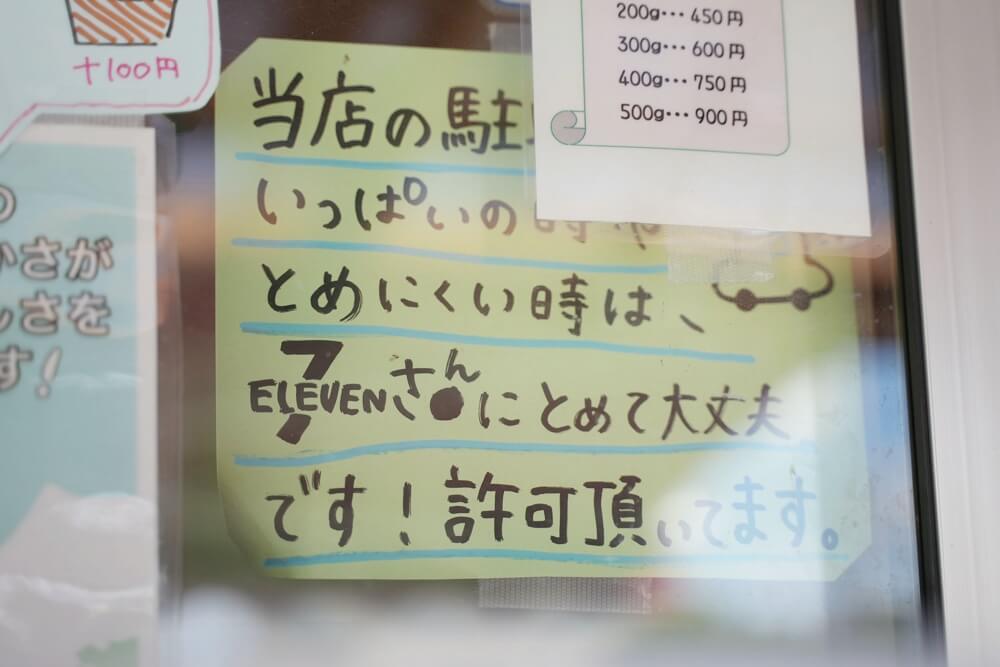 +100円
200g･･･450円
300g･･･600円
400g･･･750円
500g･･･900円
当店の駐
いっぱいの時や
とめにくい時は、
7 ELEVENさんにとめて大丈夫
です！許可頂いてます。
さが
さを
す！